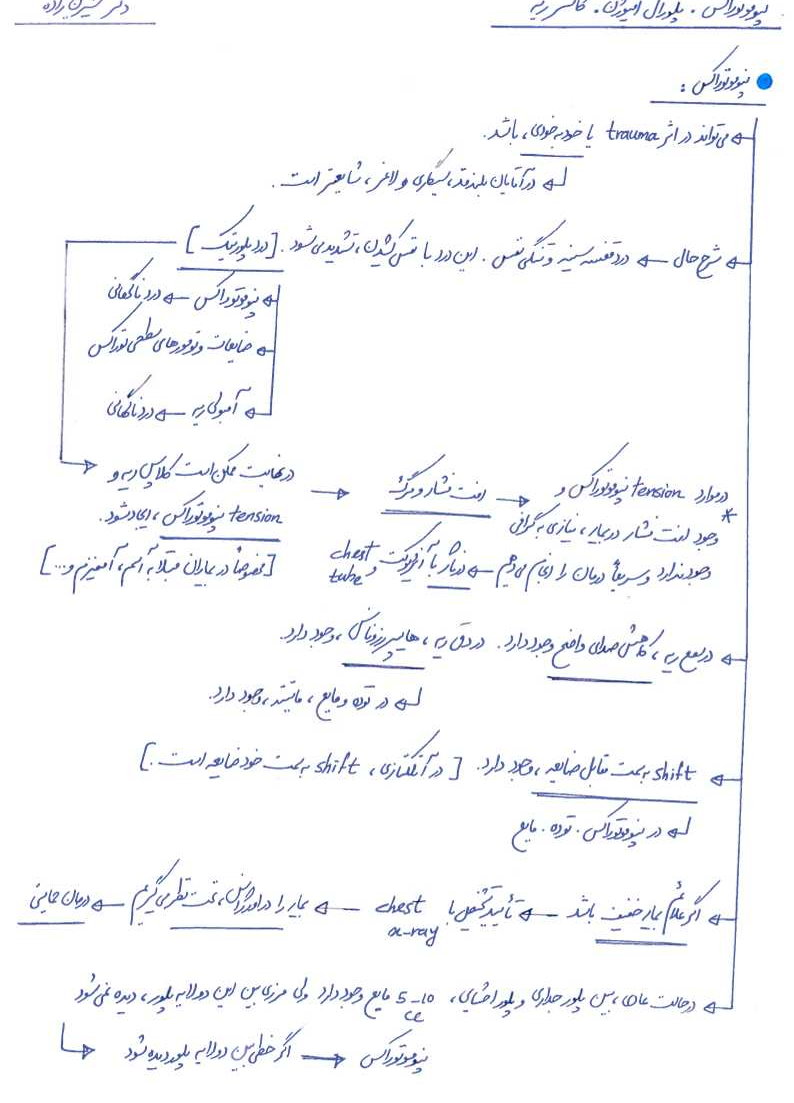 نوموتوراکس . پلورال افیوژن . کانسر ریه
دکتر
نوموتوراکس :
می‌تواند در اثر trauma یا خودبه‌خودی، باشد.
در آقایان بلندقد، سیگاری و لاغر، شایعتر است.
شرح حال ← درد قفسه سینه و تنگی نفس . این درد با نفس کشیدن، تشدید می‌شود . [درد پلورتیک]
نوموتوراکس ← درد ناگهانی
ضایعات و تومورهای سطحی توراکس
آمبولی ریه ← درد ناگهانی
در نهایت ممکن است کلاپس ریه و
tension نوموتوراکس، ایجاد شود.
[مخصوصاً در بیماران مبتلا به آسم، آمفیزم و...]
→ افت فشار و مرگ →
* در موارد tension نوموتوراکس و
وجود افت فشار در بیمار، نیازی به گرافی
وجود ندارد و سریعاً درمان را انجام می‌دهیم ← درناژ با آنژیوکت و chest tube
در سمع ریه، کاهش صدای واضح وجود دارد. در دق ریه، هایپررزونانس، وجود دارد.
در توده و مایع، ماتیته، وجود دارد.
shift به سمت مقابل ضایعه، وجود دارد. [در آتلکتازی، shift به سمت خود ضایعه است.]
در نوموتوراکس . توده . مایع
اگر علائم بیمار خفیف باشد ← تأیید تشخیص با chest x-ray ← بیمار را در اورژانس، تحت نظر می‌گیریم ← درمان حمایتی
در حالت عادی، بین پلور جداری و پلور احشایی، 5-10 cc مایع وجود دارد ولی مرزی بین این دو لایه پلور، دیده نمی‌شود
اگر خطی بین دو لایه پلور دیده شود → نوموتوراکس